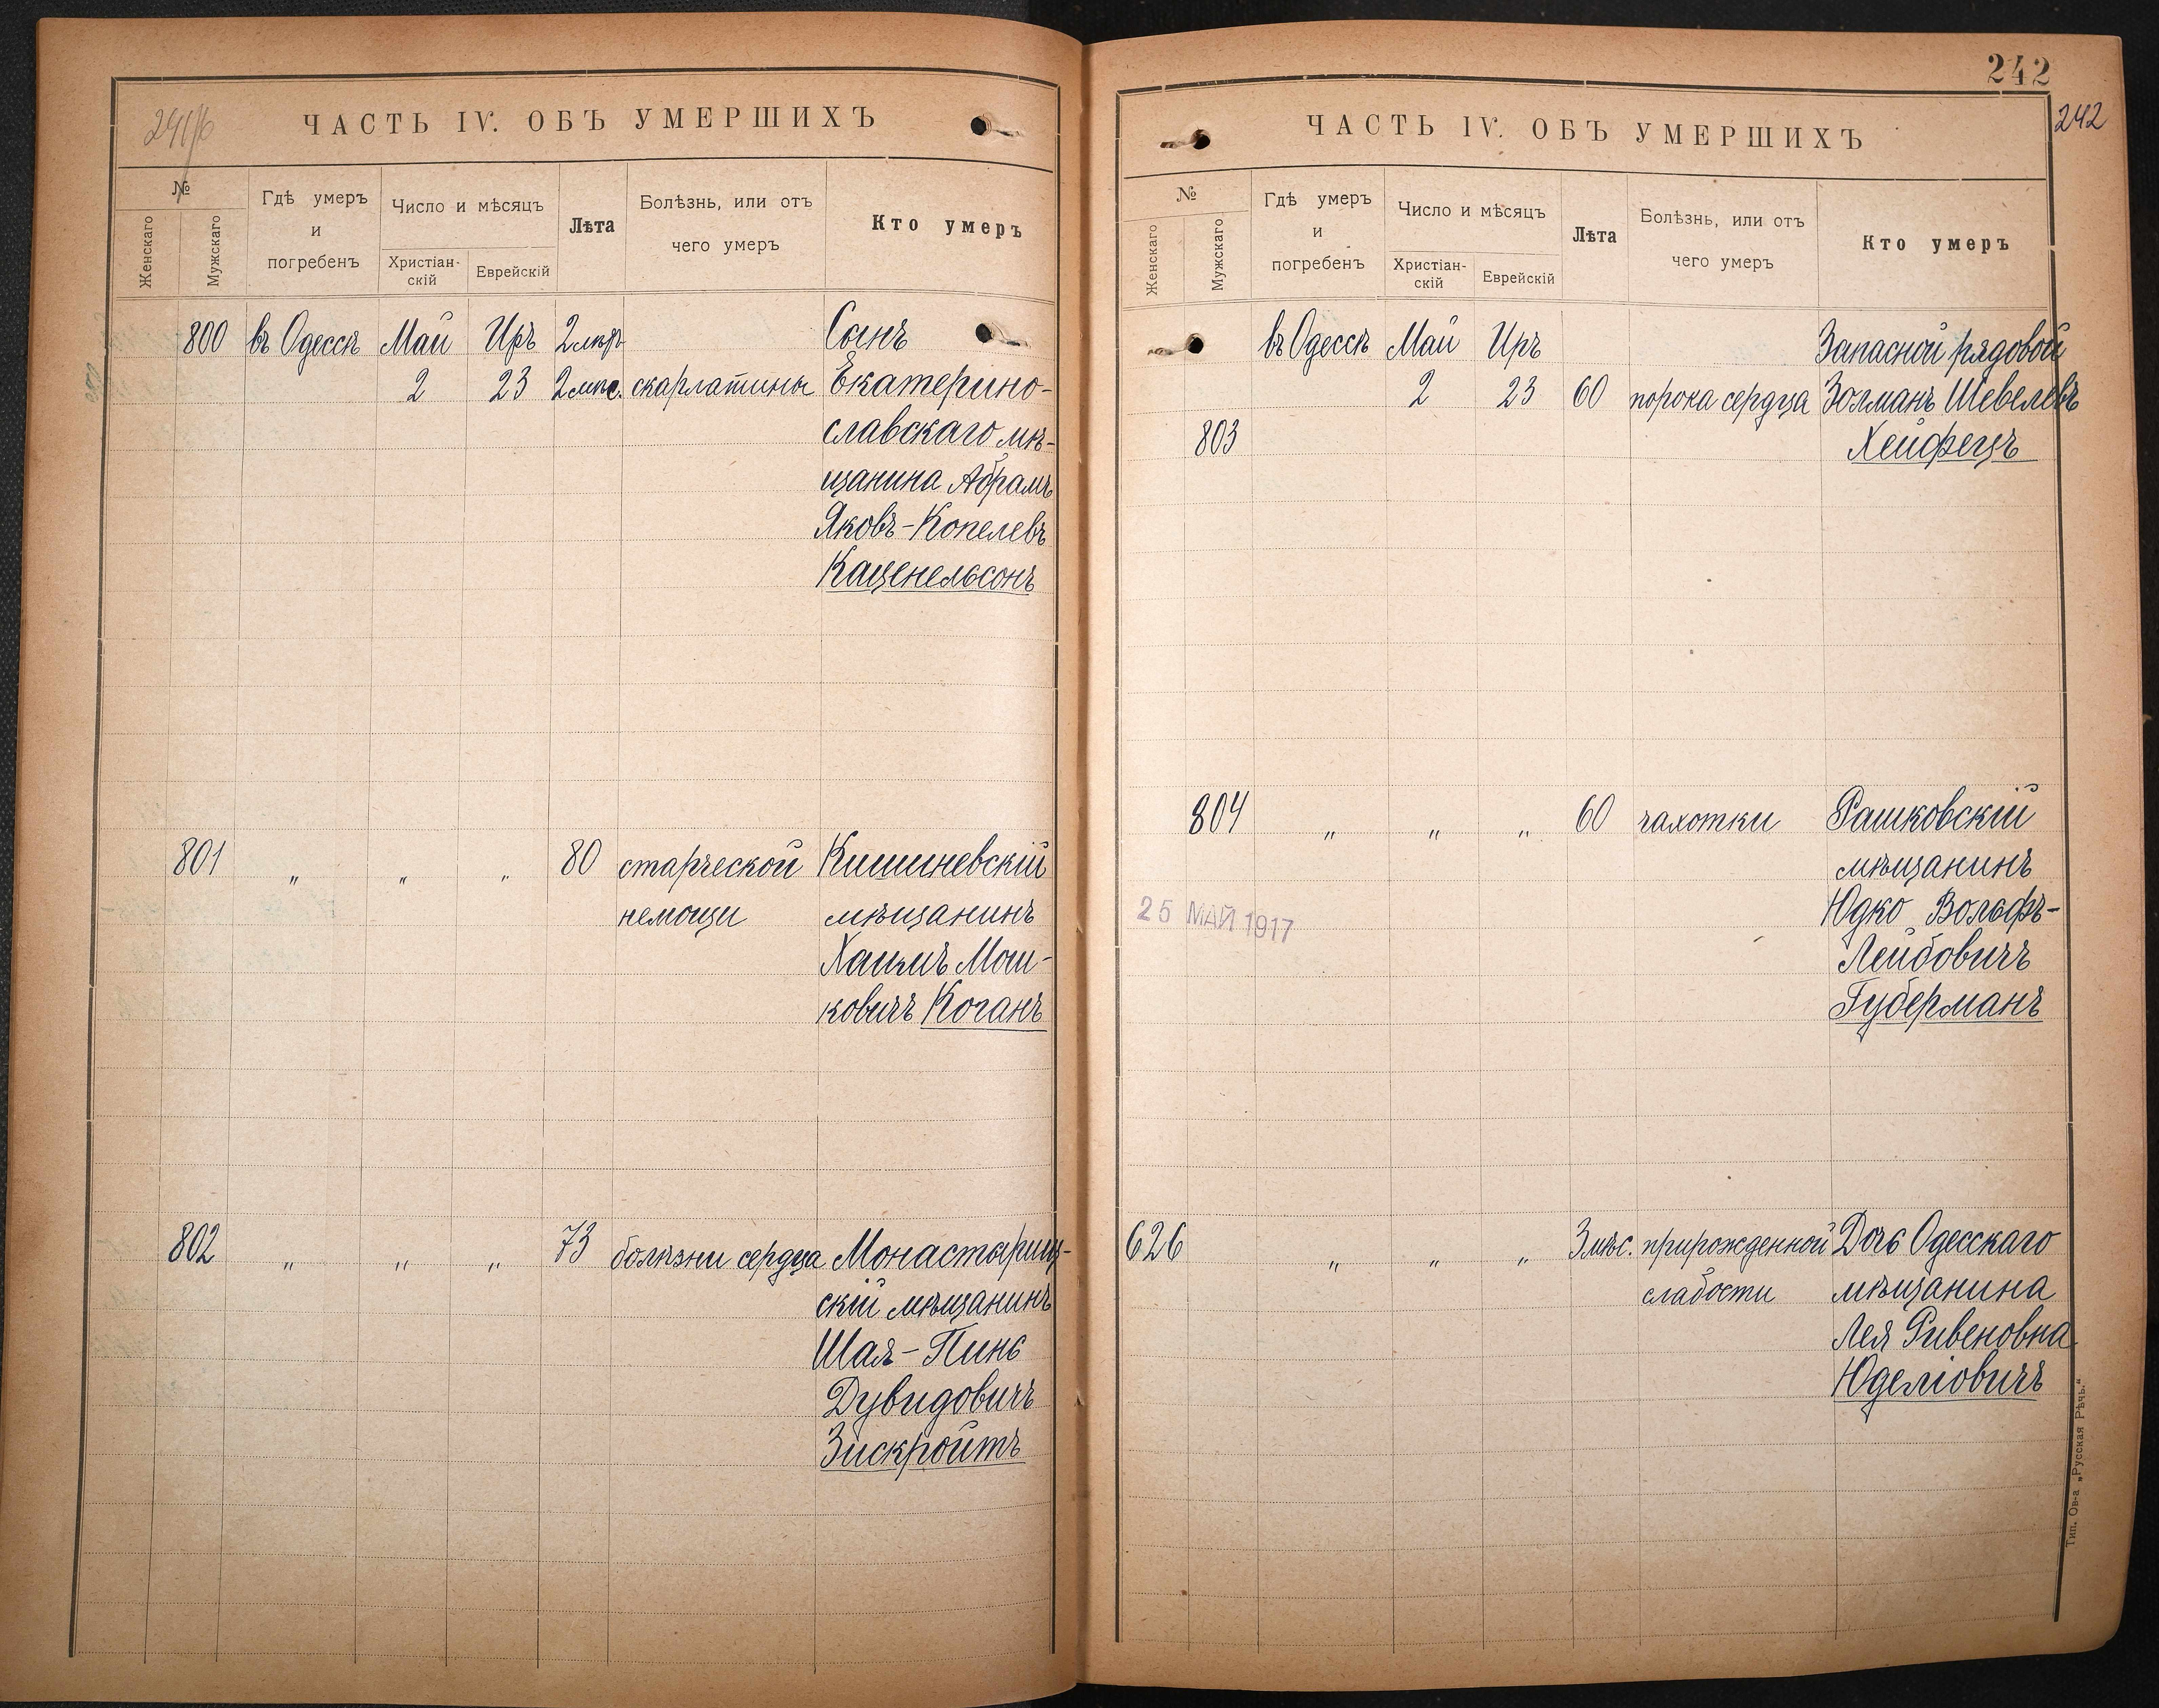 ЧАСТЬ IV. ОБЪ УМЕРШИХЪ
№
Женскаго
Мужскаго
Гдѣ умеръ
и
погребенъ
Число и мѣсяцъ
Христіан-
скій
Еврейскій
Лѣта
Болѣзнь, или отъ
чего умеръ
Кто умеръ
800 въ Одессѣ Май Иръ Сынъ
2 23 2 мѣс. скарлатины Екатерино-
славскаго мѣ-
щанина Абрамъ
Яковъ-Копелевъ
Каценельсонъ
801 " " " 80 старческой Кишиневскій
немощи мѣщанинъ
Хаимъ Мош-
ковичъ Коганъ
802 " " " 73 болѣзни сердца Монастырищ-
скій мѣщанинъ
Шая-Пинс
Дувидовичъ
Зискройтъ
242
242
ЧАСТЬ IV. ОБЪ УМЕРШИХЪ
№
Женскаго
Мужскаго
Гдѣ умеръ
и
погребенъ
Число и мѣсяцъ
Христіан-
скій
Еврейскій
Лѣта
Болѣзнь, или отъ
чего умеръ
Кто умеръ
въ Одессѣ Май Иръ Запасной рядовой
2 23 60 порока сердца Золманъ Шевелевъ
803 Хейфецъ
804 " " " 60 чахотки Рашковскій
мѣщанинъ
25 МАЙ 1917 Юдко Вольфъ-
Лейбовичъ
Губерманъ
626 " " " 3 мѣс. прирожденной Дочь Одесскаго
слабости мѣщанина
Лея Рувеновна
Юделіовичъ
Тип. Ов-а „Русская Рѣчь."